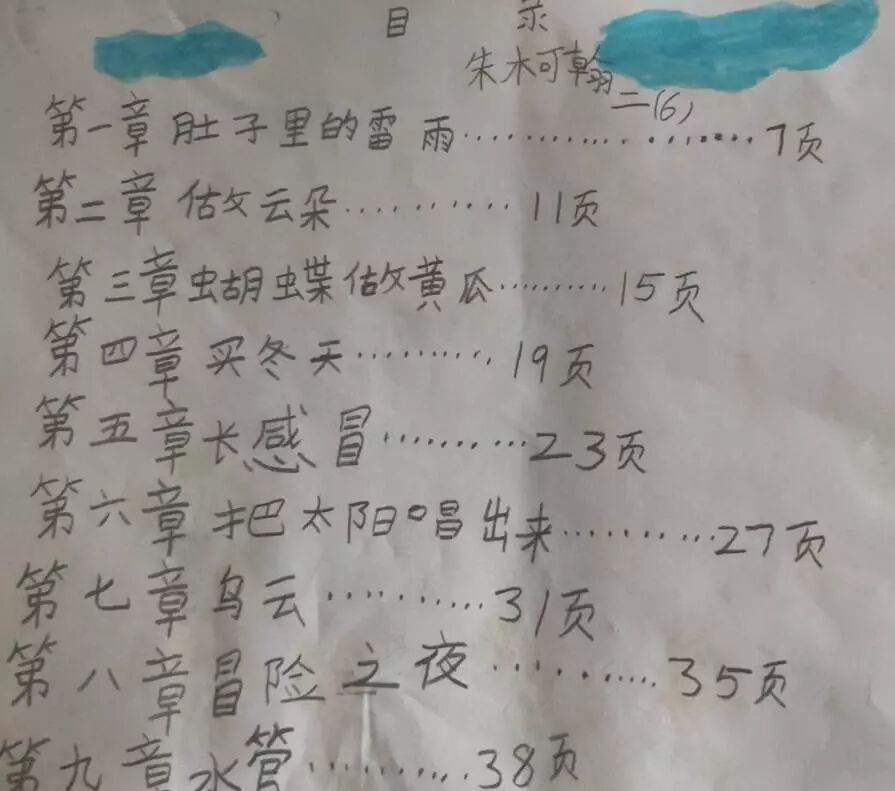 目 录
朱木可翰
二(6)
第一章肚子里的雷雨…………………7页
第二章 做云朵…………11页
第三章蝴蝶做黄瓜…………15页
第四章 买冬天…………19页
第五章长感冒…………23页
第六章把太阳唱出来…………27页
第七章乌云…………31页
第八章冒险之夜…………35页
第九章水管…………38页